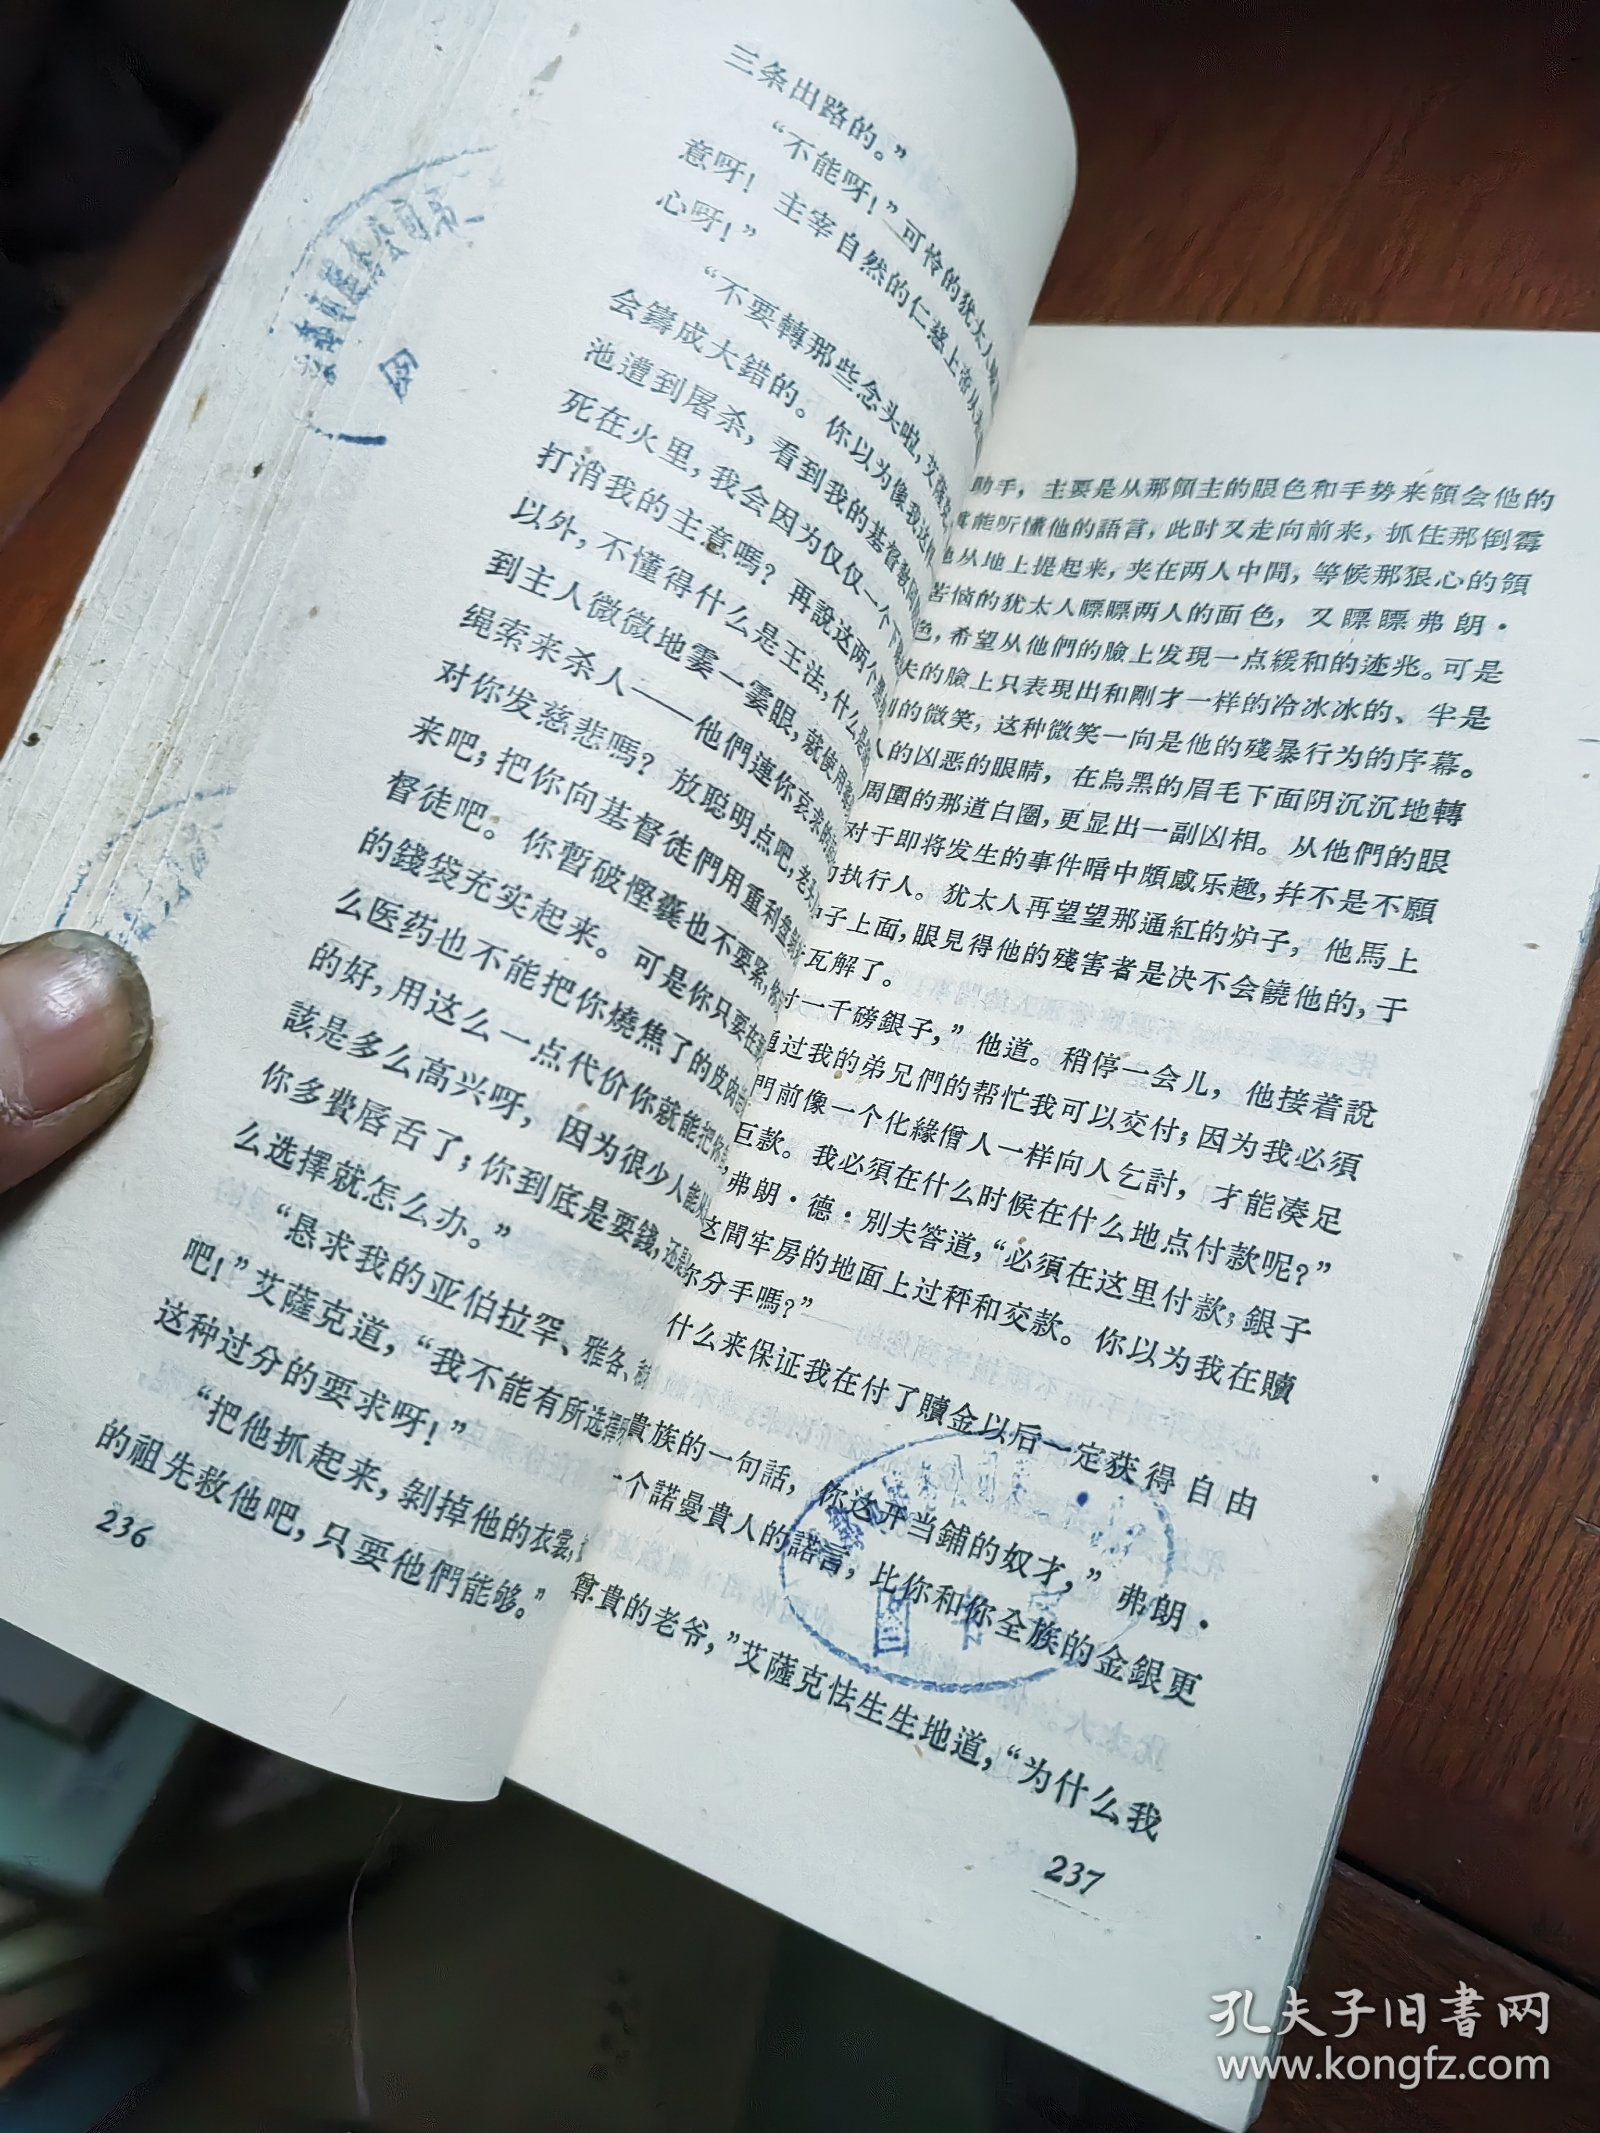 三条出路的。”
“不能呀！”可怜的犹太人
意呀！主宰自然的仁慈上帝从
心呀！”
“不要轉那些念头啦，艾薩克
会鑄成大錯的。你以为像我这
池遭到屠杀，看到我的基督
死在火里，我会因为仅仅一个
打消我的主意嗎？再說这两个
以外，不懂得什么是王法，什么是
到主人微微地霎一霎眼，就使用
绳索来杀人——他們連你哀求的
对你发慈悲嗎？放聪明点吧，老
来吧；把你向基督徒們用重利盘
督徒吧。你暫破慳囊也不要紧，
的錢袋充实起来。可是你只要在
么医药也不能把你燒焦了的皮肉
的好，用这么一点代价你就能把你
該是多么高兴呀，因为很少人能从
你多費唇舌了；你到底是要錢，还
么选擇就怎么办。”
“恳求我的亚伯拉罕、雅各、
吧！”艾薩克道，“我不能有所选擇
这种过分的要求呀！”
“把他抓起来，剝掉他的衣裳，
的祖先救他吧，只要他們能够。”
236
助手，主要是从那領主的眼色和手势来領会他的
能听懂他的語言，此时又走向前来，抓住那倒霉
从地上提起来，夹在两人中間，等候那狠心的領
苦恼的犹太人瞟瞟两人的面色，又瞟瞟弗朗·
色，希望从他們的臉上发現一点緩和的迹兆。可是
夫的臉上只表現出和剛才一样的冷冰冰的、半是
的微笑，这种微笑一向是他的殘暴行为的序幕。
人的凶恶的眼睛，在烏黑的眉毛下面阴沉沉地轉
周圍的那道白圈，更显出一副凶相。从他們的眼
对于即将发生的事件暗中頗感乐趣，幷不是不願
的执行人。犹太人再望望那通紅的炉子，他馬上
子上面，眼見得他的殘害者是决不会饒他的，于
瓦解了。
一千磅銀子，”他道。稍停一会儿，他接着說
通过我的弟兄們的帮忙我可以交付；因为我必須
門前像一个化緣僧人一样向人乞討，才能凑足
巨款。我必須在什么时候在什么地点付款呢？”
弗朗·德·別夫答道，“必須在这里付款；銀子
这間牢房的地面上过秤和交款。你以为我在贖
你分手嗎？”
什么来保证我在付了贖金以后一定获得自由
貴族的一句話，你这开当鋪的奴才，”弗朗·
一个諾曼貴人的諾言，比你和你全族的金銀更
尊貴的老爷，”艾薩克怯生生地道，“为什么我
237
孔夫子旧書网
www.kongfz.com